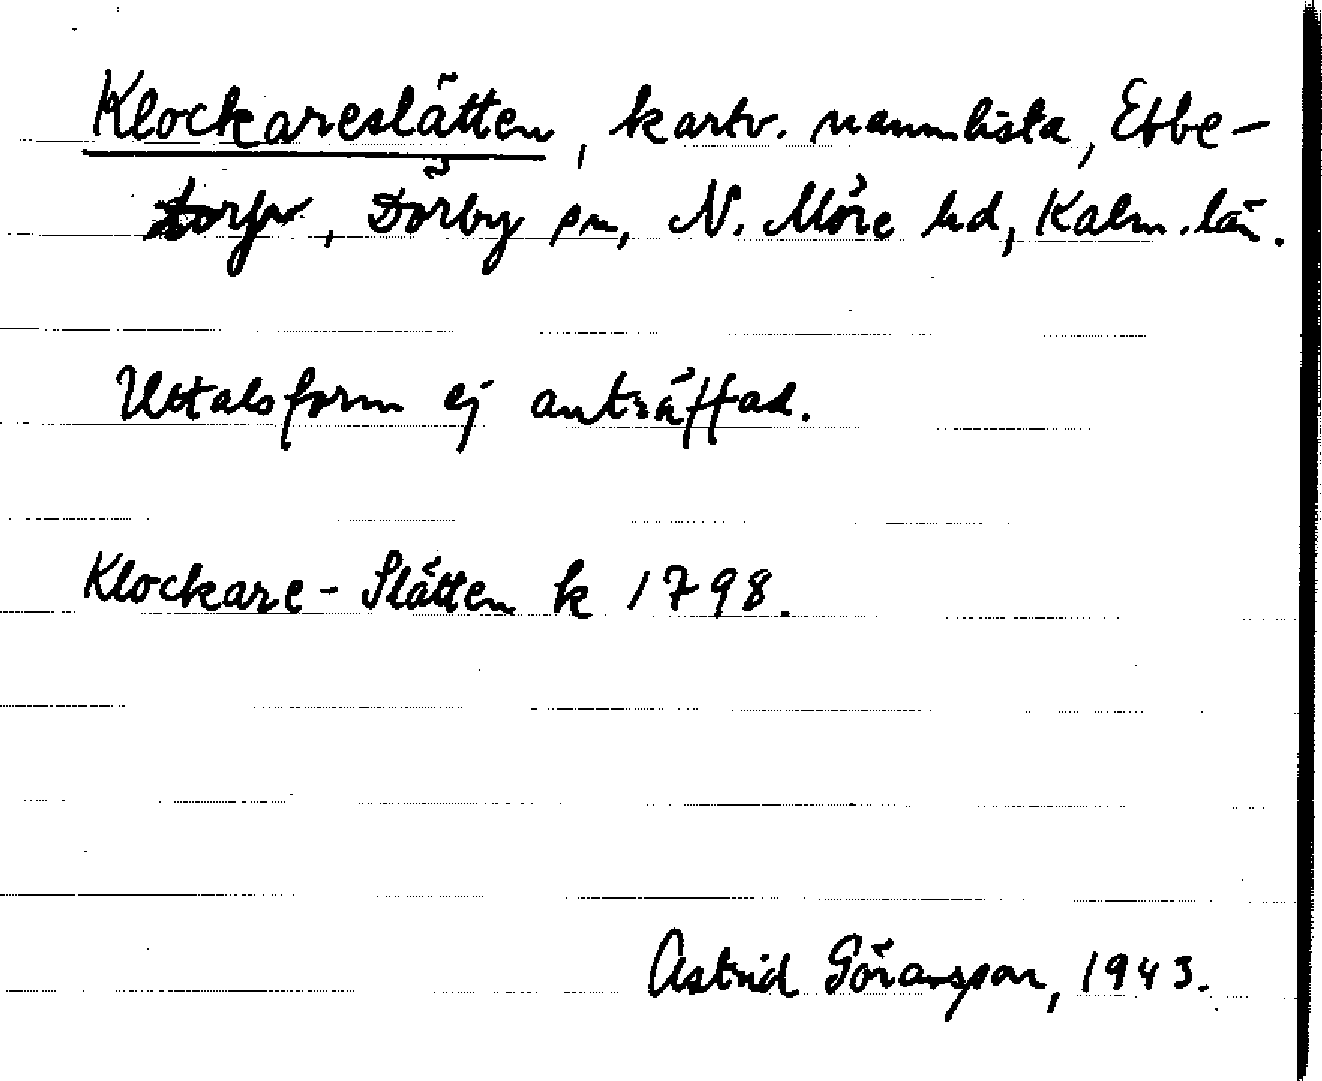 Klockareslätten, kartv. namnlista, Ebbe-
torp, Dörby sn, N. Möre hd, Kalm. län.
Uttalsform ej anträffad.
Klockare-Slätten k 1798.
Astrid Göransson, 1943.